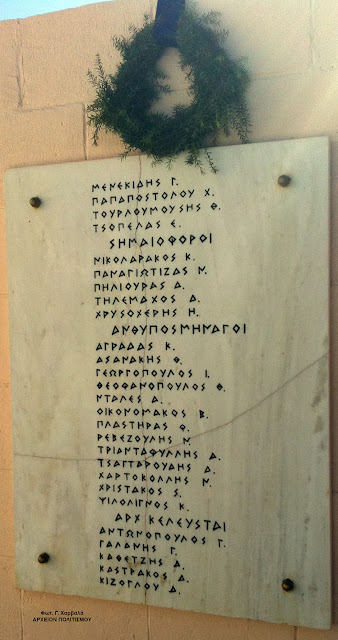 ΜΕΝΕΚΙΔΗΣ Γ.
ΠΑΠΑΠΟΣΤΟΛΟΥ Χ.
ΤΟΥΡΛΟΥΜΟΥΣΗΣ Θ.
ΤΣΟΠΕΛΑΣ Ε.
ΣΗΜΑΙΟΦΟΡΟΙ
ΝΙΚΟΛΑΡΑΚΟΣ Κ.
ΠΑΝΑΓΙΩΤΙΖΑΣ Μ.
ΠΗΛΙΟΥΡΑΣ Δ.
ΤΗΛΕΜΑΧΟΣ Δ.
ΧΡΥΣΟΧΕΡΗΣ Η.
ΑΝΘΥΠΟΣΜΗΝΑΓΟΙ
ΑΓΡΑΔΑΣ Κ.
ΑΣΑΝΑΚΗΣ Θ.
ΓΕΩΡΓΟΠΟΥΛΟΣ Ι.
ΘΕΟΦΑΝΟΠΟΥΛΟΣ Θ.
ΝΤΑΛΕΣ Δ.
ΟΙΚΟΝΟΜΑΚΟΣ Β.
ΠΛΑΣΤΗΡΑΣ Θ.
ΡΕΒΕΖΟΥΛΗΣ Μ.
ΤΡΙΑΝΤΑΦΥΛΛΗΣ Δ.
ΤΣΑΓΓΑΡΟΥΔΗΣ Δ.
ΧΑΡΤΟΚΟΛΛΗΣ Μ.
ΧΡΙΣΤΑΚΟΣ Σ.
ΨΙΛΟΛΙΓΝΟΣ Κ.
ΑΡΧΚΕΛΕΥΣΤΑΙ
ΑΝΤΩΝΟΠΟΥΛΟΣ Γ.
ΓΑΛΑΝΗΣ Γ.
ΚΑΦΕΤΖΗΣ Δ.
ΚΑΣΤΡΑΚΟΣ Δ.
ΚΙΖΟΓΛΟΥ Δ.
Φωτ. Γ. Χαρβαλά
ΑΡΧΕΙΟΝ ΠΟΛΙΤΙΣΜΟΥ